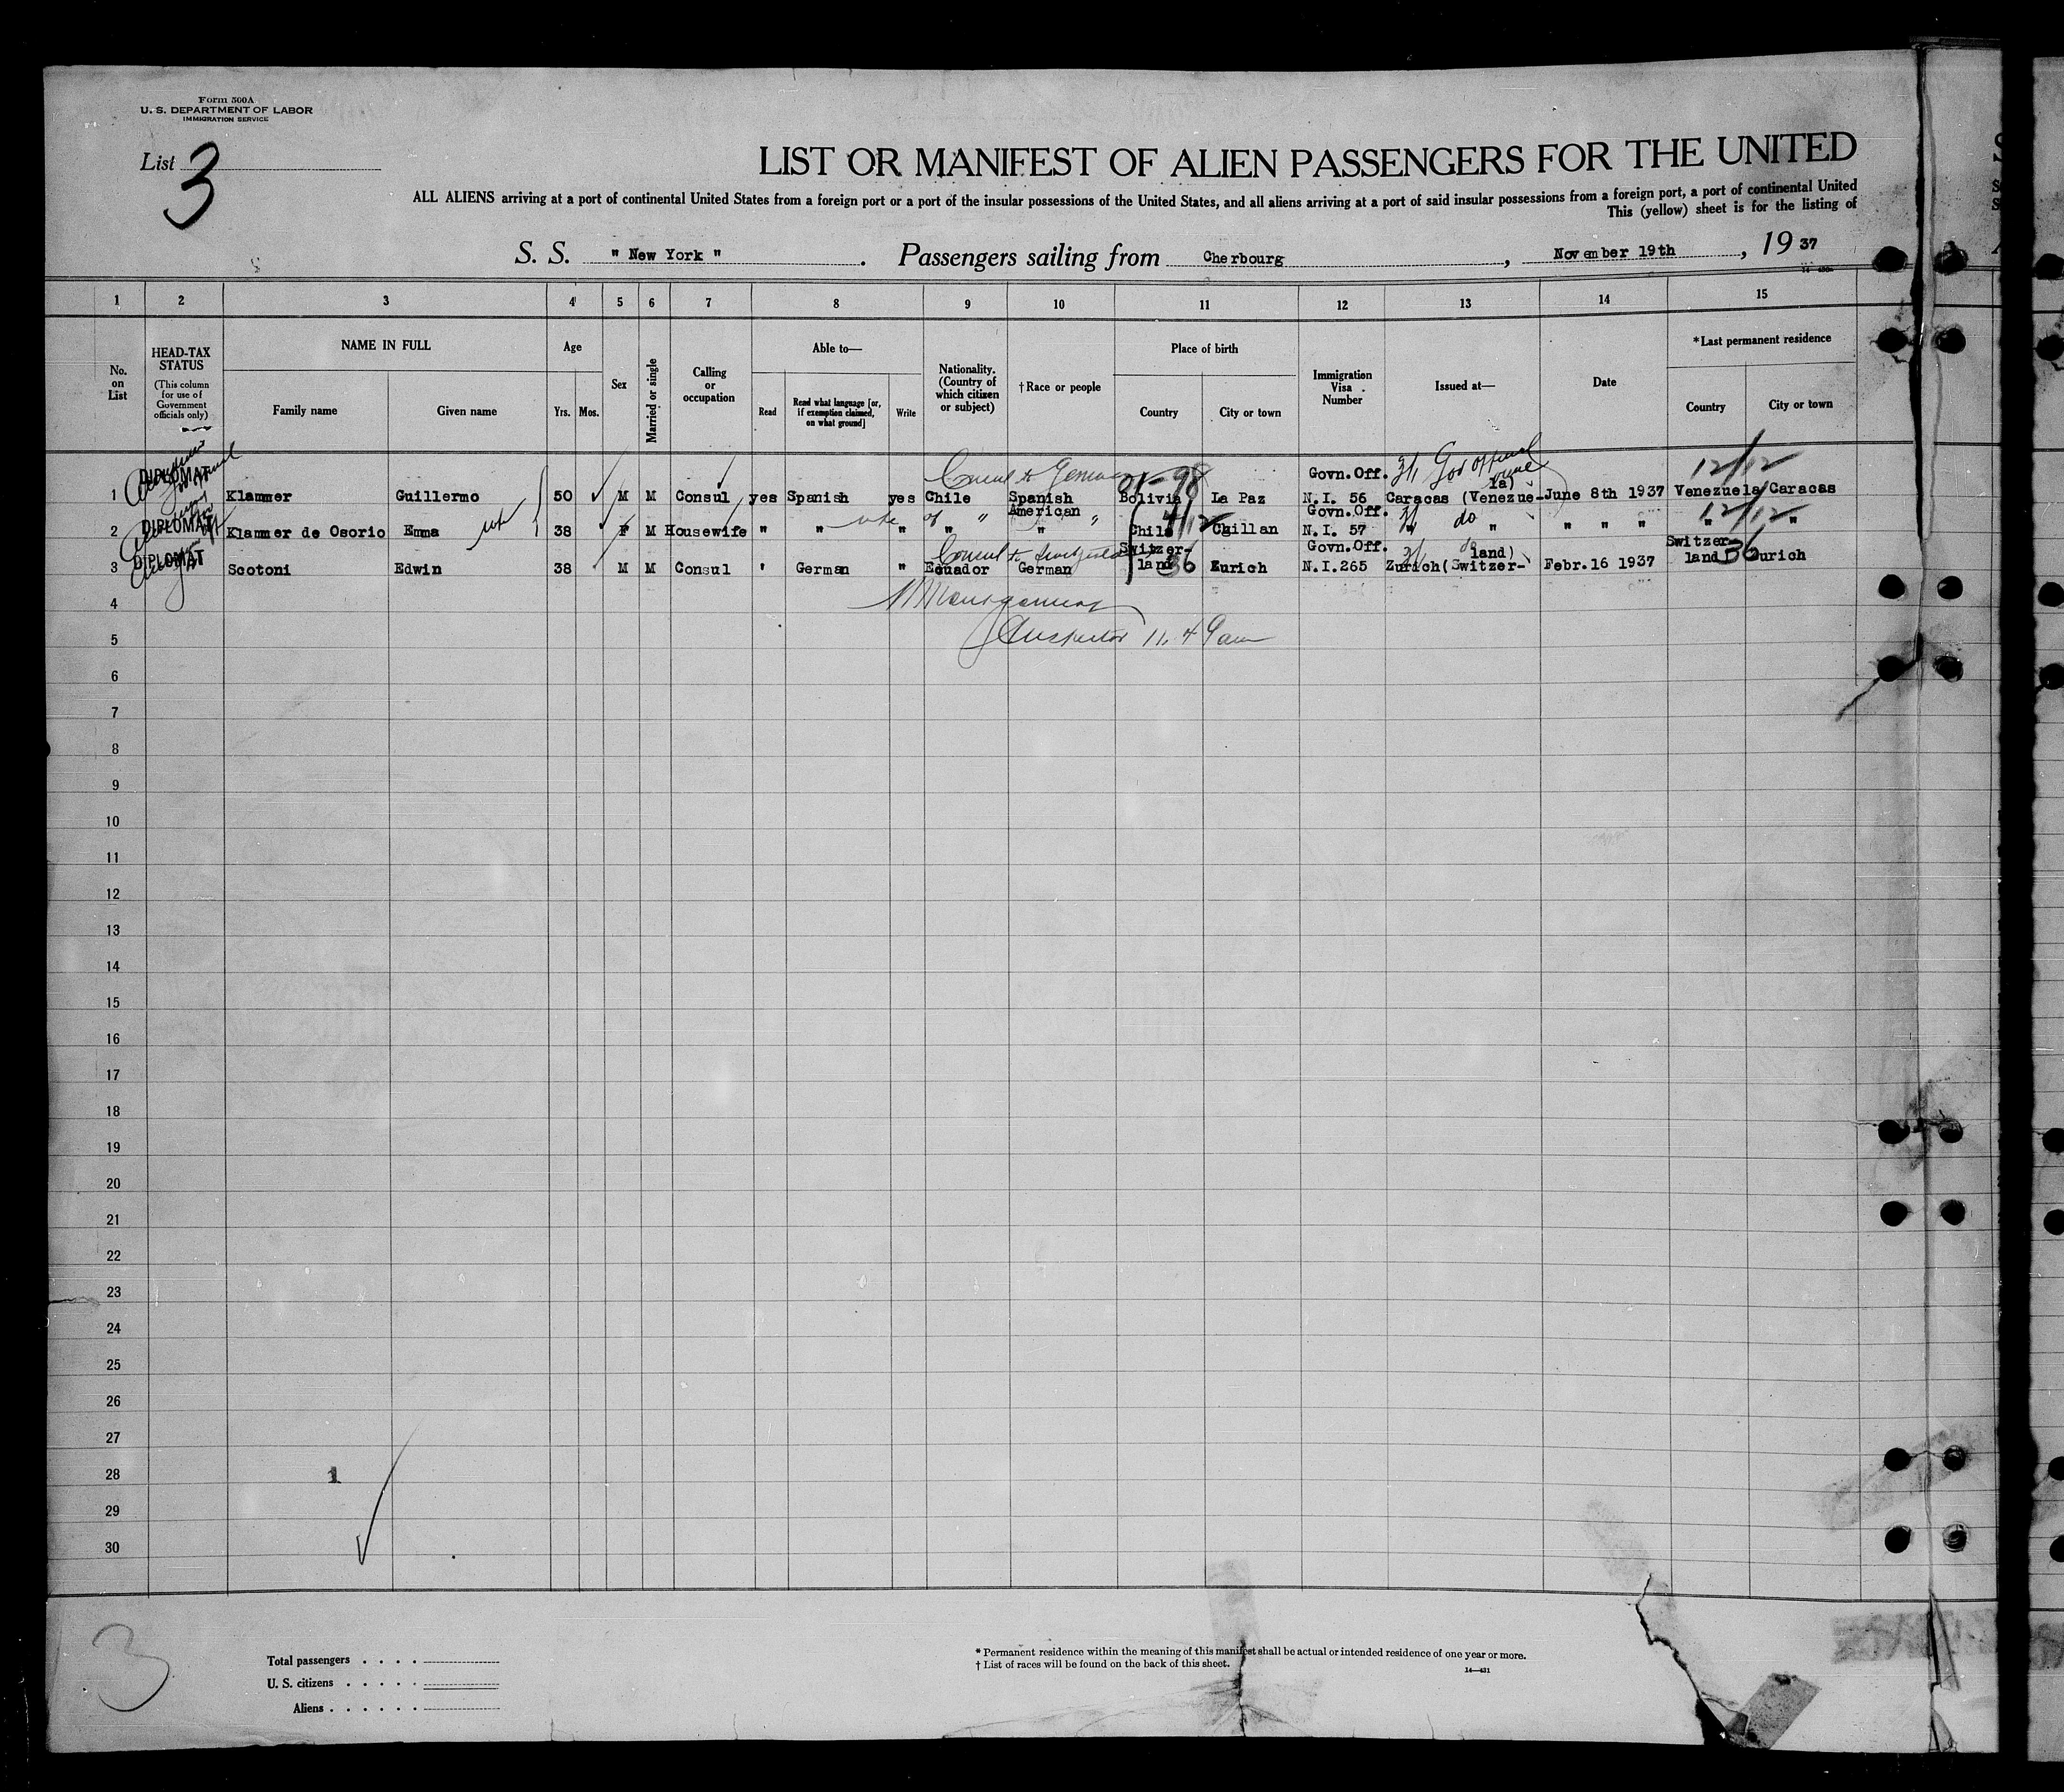 Form 500A
U. S. DEPARTMENT OF LABOR
IMMIGRATION SERVICE
List 3
LIST OR MANIFEST OF ALIEN PASSENGERS FOR THE UNITED
ALL ALIENS arriving at a port of continental United States from a foreign port or a port of the insular possessions of the United States, and all aliens arriving at a port of said insular possessions from a foreign port, a port of continental United
This (yellow) sheet is for the listing of
S. S. " New York " . Passengers sailing from Cherbourg , November 19th , 19 37
1 2 3 4 5 6 7 8 9 10 11 12 13 14 15
No. on List
HEAD-TAX STATUS
(This column for use of Government officials only)
NAME IN FULL
Family name Given name
Age
Yrs. Mos.
Sex
Married or single
Calling or occupation
Able to—
Read
Read what language [or, if exemption claimed, on what ground]
Write
Nationality. (Country of which citizen or subject)
†Race or people
Place of birth
Country City or town
Immigration Visa Number
Issued at—
Date
*Last permanent residence
Country City or town
DIPLOMAT Consul to 12/12
1 Klammer Guillermo 50 M M Consul yes Spanish yes Chile Spanish American Bolivia La Paz Govn.Off. N.I. 56 Caracas (Venezue-la) June 8th 1937 Venezuela Caracas
DIPLOMAT wife of " " 4/12 do 12/12
2 Klammer de Osorio Emma wife 38 F M Housewife " " " " " Chile Chillan Govn.Off. N.I. 57 " " " " " " "
DIPLOMAT Consul to 36 do 36
3 Scotoni Edwin 38 M M Consul " German " Ecuador German Switzer-land Zurich Govn.Off. N.I.265 Zurich(Switzer-land) Febr.16 1937 Switzer-land Zurich
4
Inspector
5
6
7
8
9
10
11
12
13
14
15
16
17
18
19
20
21
22
23
24
25
26
27
28 1
29
30
3
Total passengers . . . .
U. S. citizens . . . . .
Aliens . . . . . .
* Permanent residence within the meaning of this manifest shall be actual or intended residence of one year or more.
† List of races will be found on the back of this sheet.
14—431